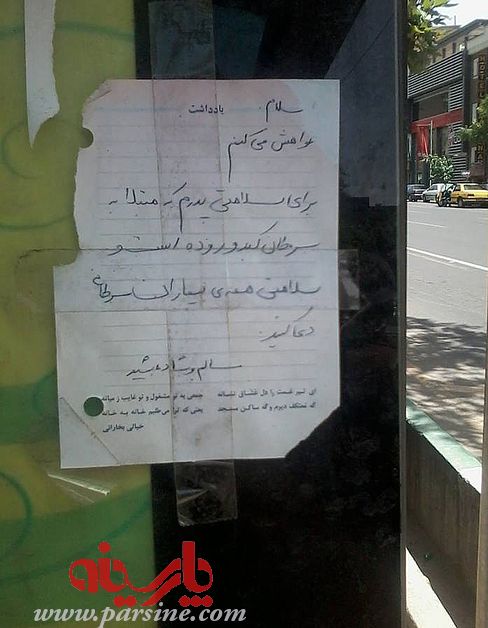 یادداشت سلام
خواهش می‌کنم
برای سلامتی پدرم که مبتلا به
سرطان کبد و روده است و
سلامتی همه‌ی بیماران سرطانی
دعا کنید.
سالم و شاد باشید
ای تیر غمت را دل عشاق نشانه جمعی به تو مشغول و تو غایب ز میانه
گه معتکف دیرم و گه ساکن مسجد یعنی که ترا می‌طلبم خانه به خانه
خیالی بخارائی
پارسینه
www.parsine.com